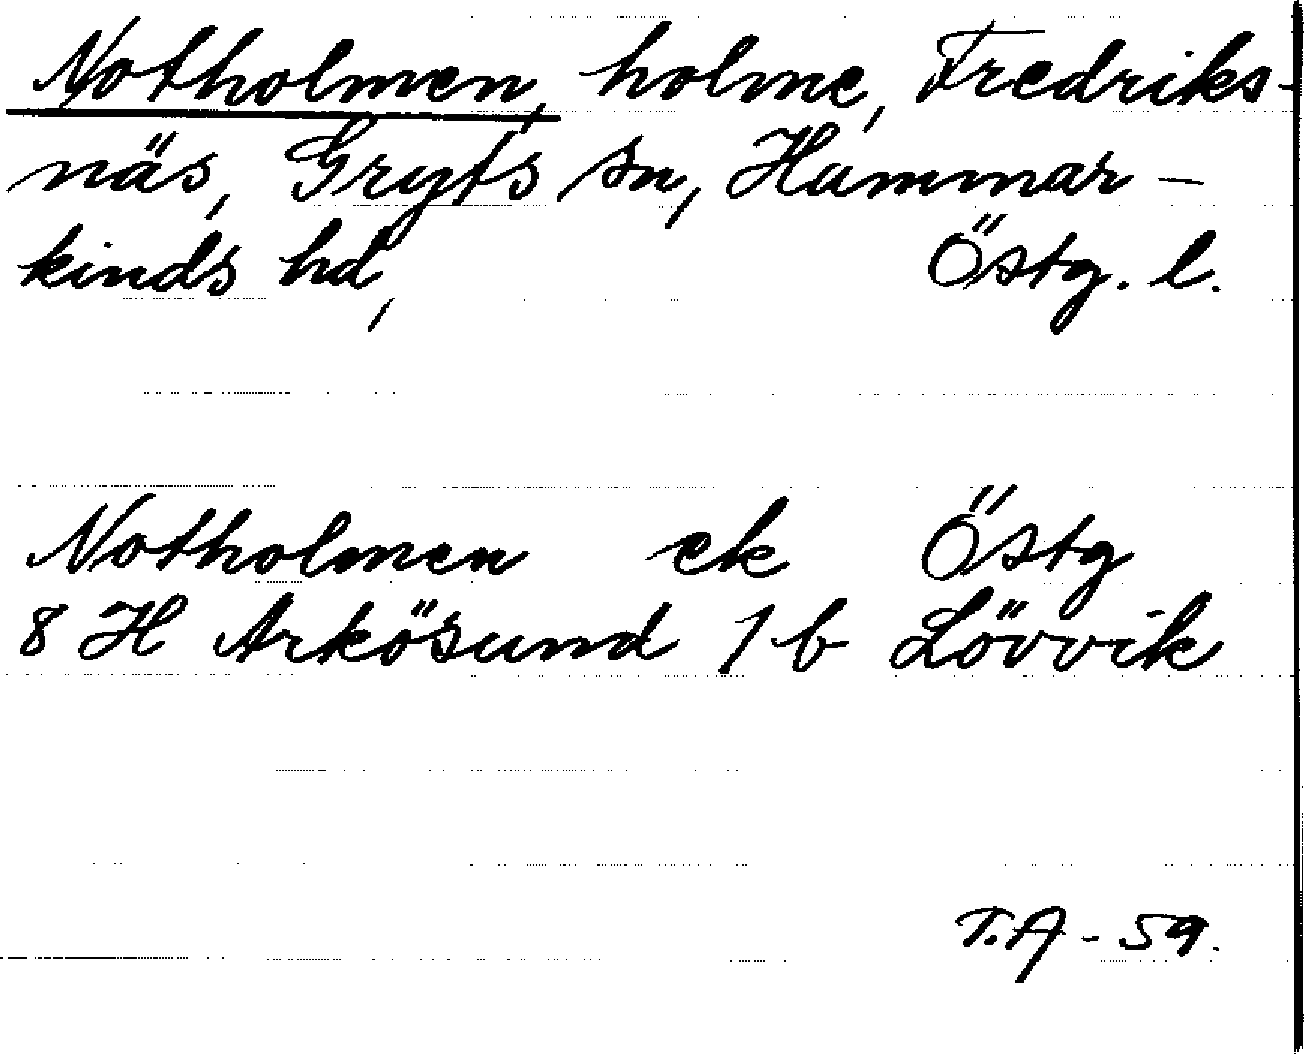 Notholmen, holme, Fredriks-
näs, Gryts sn, Hammar-
kinds hd, Östg. l.
Notholmen ek Östg
8 H Arkösund 1 b Lövvik
T.A - 59.